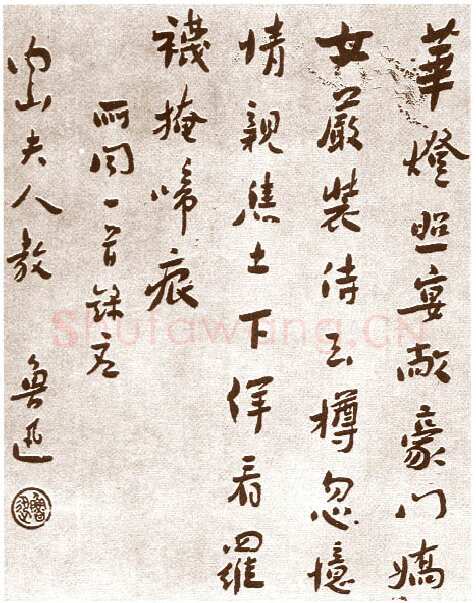 華燈照宴敞豪門嬌
女嚴裝侍玉樽忽憶
情親焦土下佯看羅
襪掩啼痕
所聞一首錄應
内山夫人教 魯迅
魯迅
Shufawang.CN